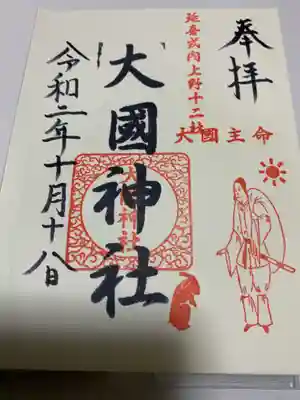 奉拝
延喜式内上野十二社
大國主命
大國神社
大國神社
令和二年十月十八日